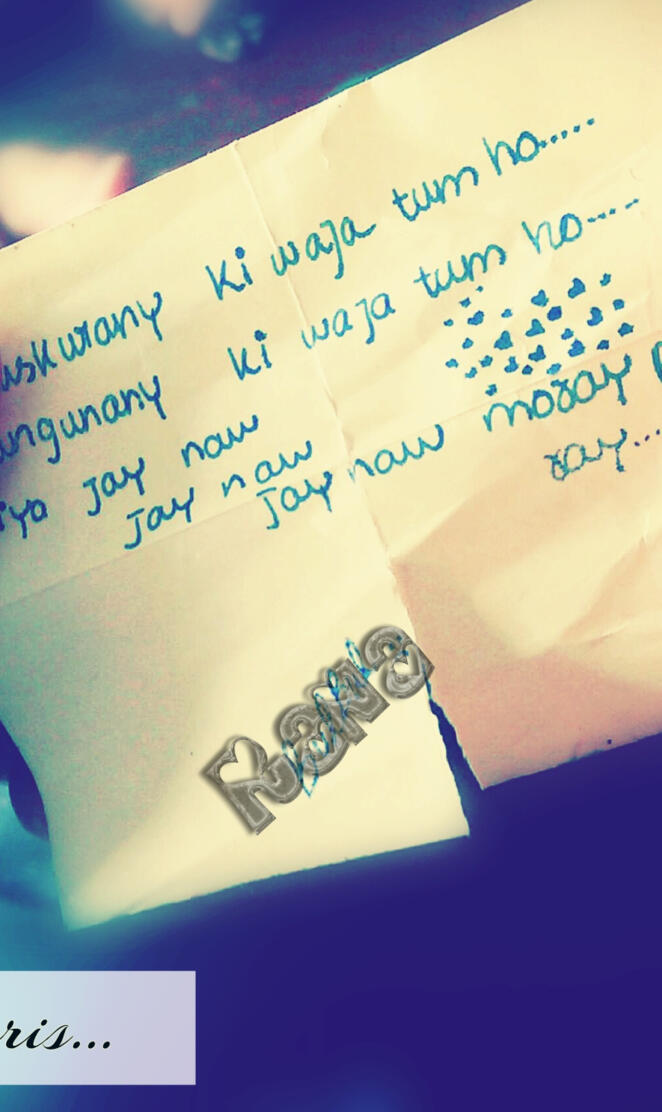 uskurany ki waja tum ho.....
ungunany ki waja tum ho....
iya jay naw
jay naw
jay naw moray
ray...
RaNa
ris...